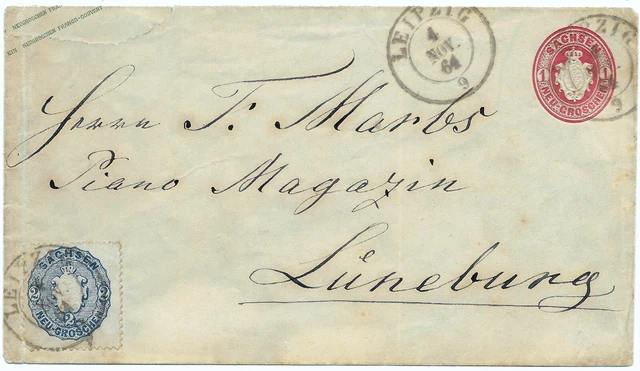 EIN NEUGROSCHEN FRANCO-COUVERT
LEIPZIG
4
NOV.
64
9
SACHSEN
1 1
NEU-GROSCHEN
ZIG
9
Herrn F. Marbs
Piano Magazin
Lüneburg
LEIPZ
SACHSEN
2 2
2
NEU-GROSCHEN